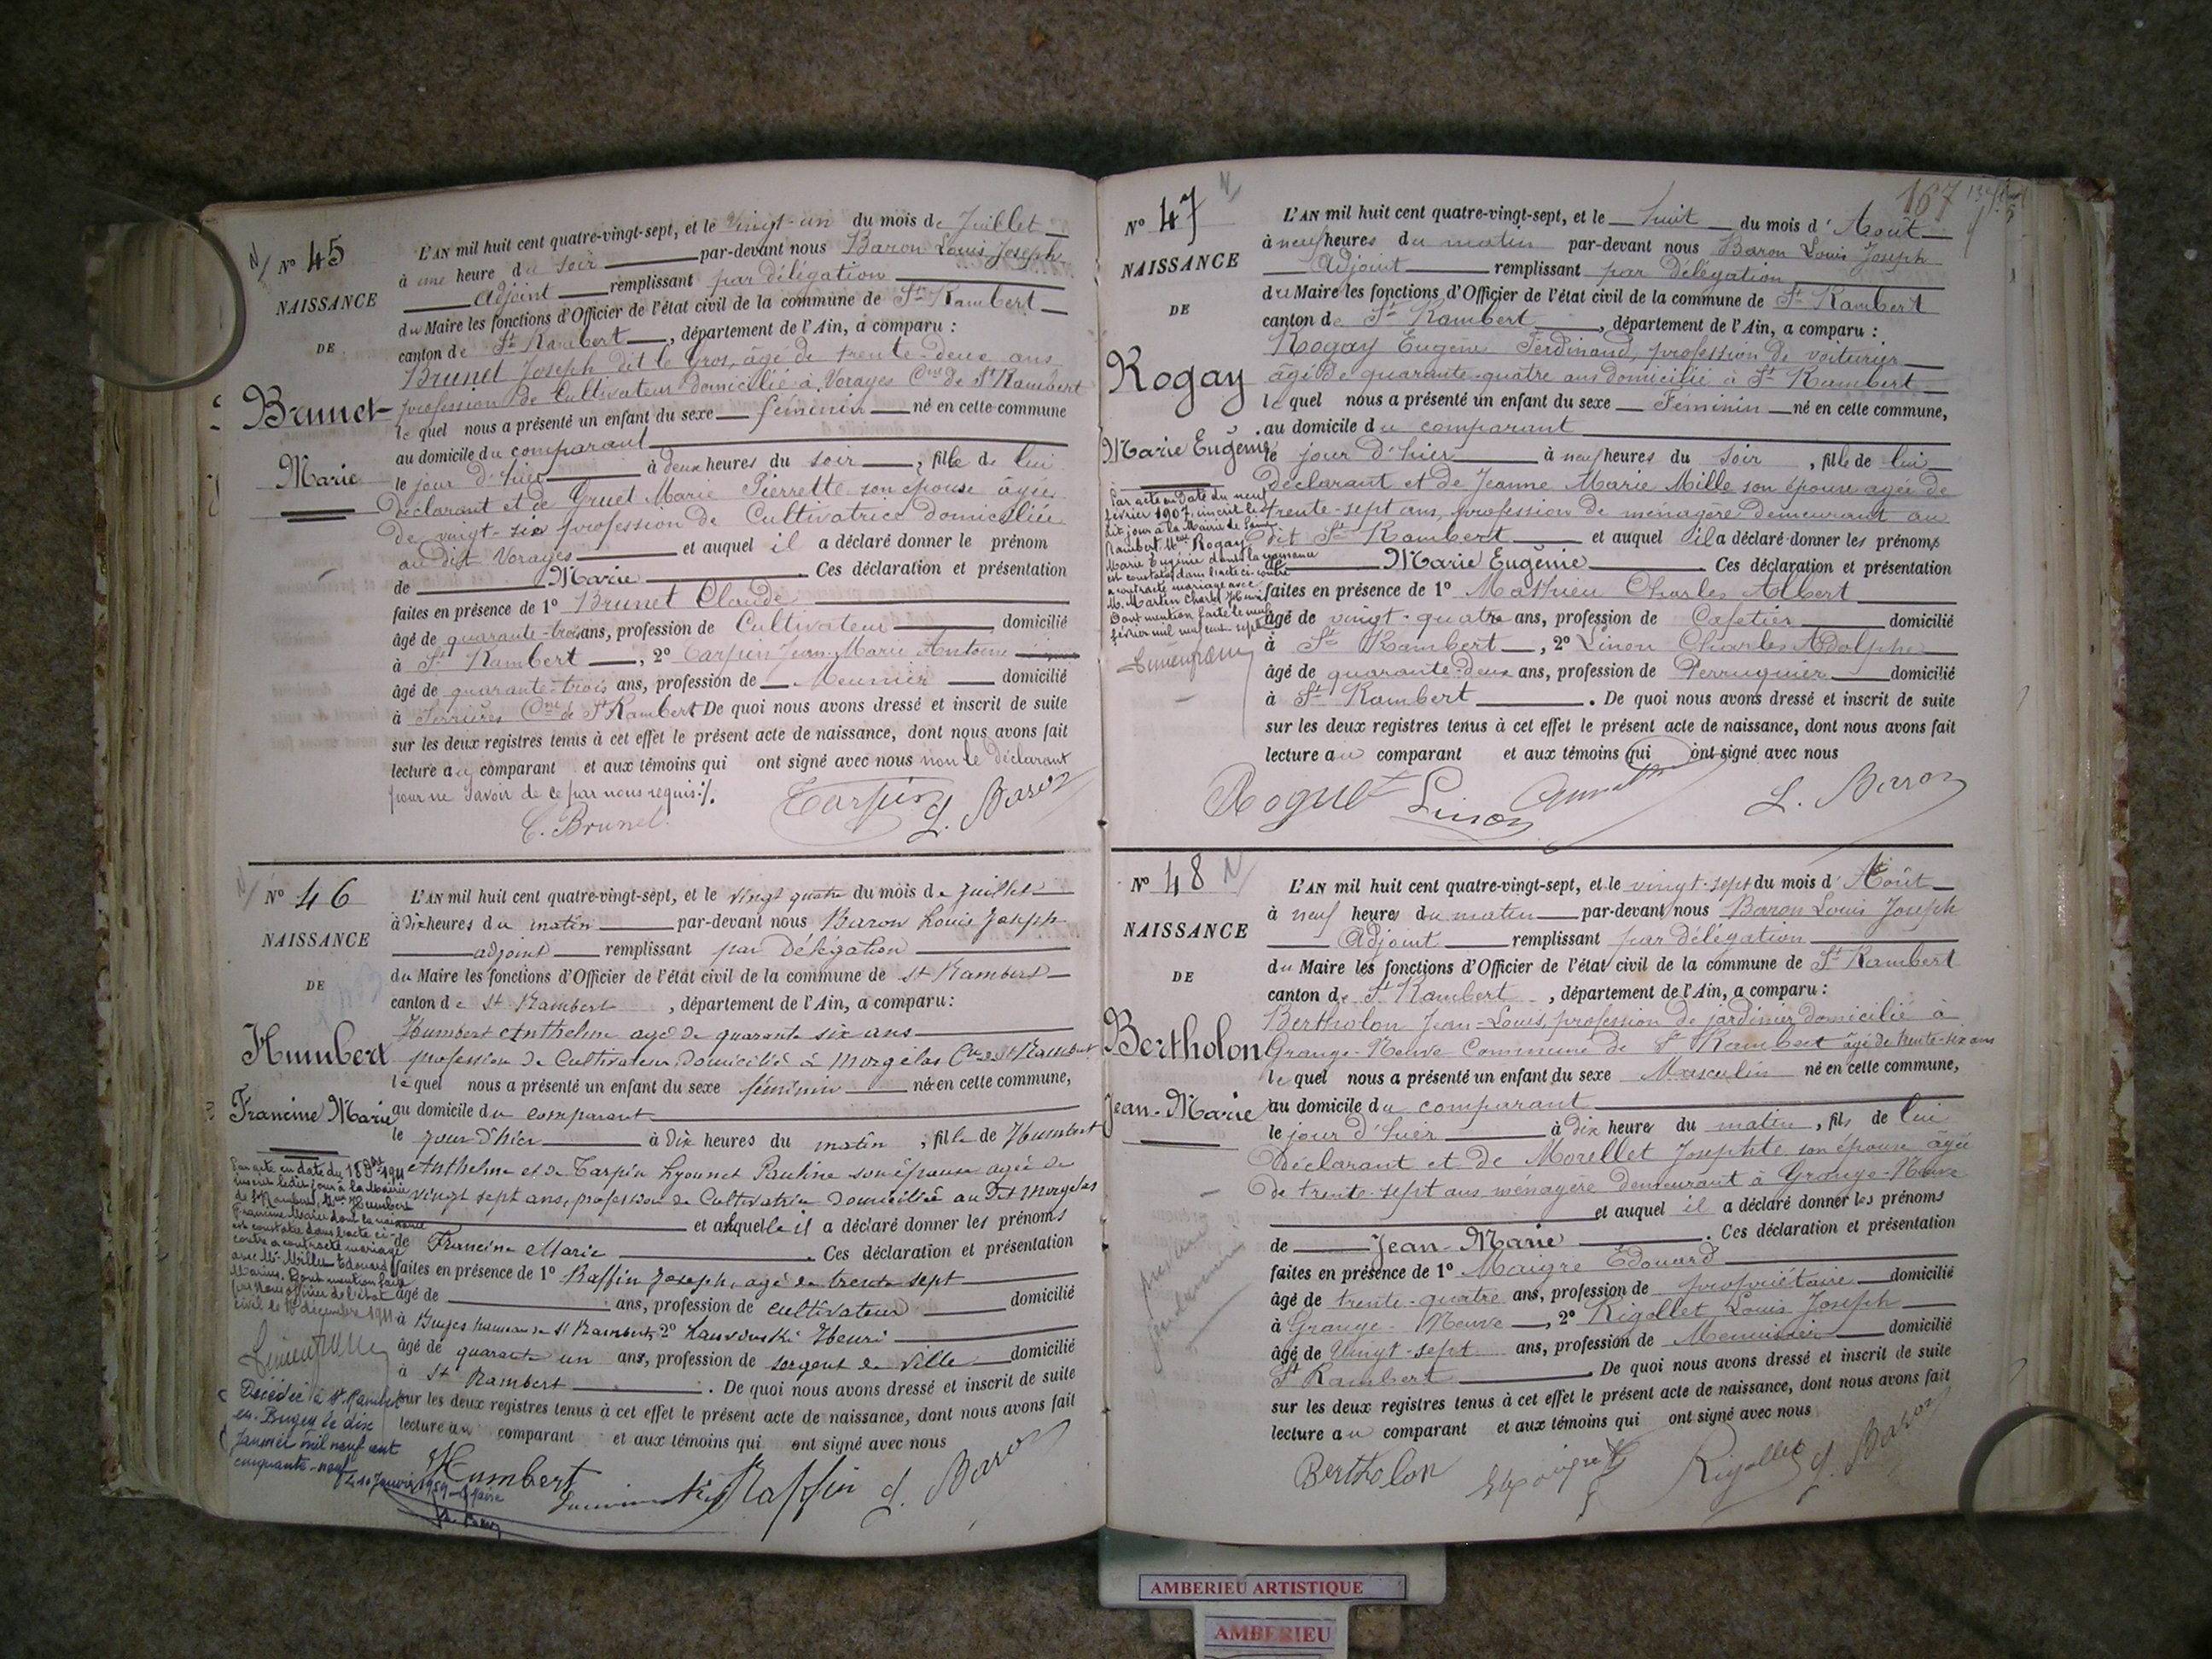 N° 45
NAISSANCE
DE
Brunet
Marie
L'AN mil huit cent quatre-vingt-sept, et le vingt-un du mois de Juillet
à une heure du soir par-devant nous Baron Louis Joseph
adjoint remplissant par délégation
du Maire les fonctions d'Officier de l'état civil de la commune de St Rambert
canton de St Rambert, département de l'Ain, a comparu :
Brunet Joseph dit le Gros, âgé de trente-deux ans
profession de Cultivateur domicilié à Vorages Cne de St Rambert
lequel nous a présenté un enfant du sexe féminin né en cette commune
au domicile du comparant
le jour d'hier à deux heures du soir, fille de lui
déclarant et de Gruet Marie Pierrette son épouse âgée
de vingt-six profession de Cultivatrice domiciliée
au dit Vorages et auquel il a déclaré donner le prénom
de Marie. Ces déclaration et présentation
faites en présence de 1° Brunet Claude
âgé de quarante-trois ans, profession de Cultivateur domicilié
à St Rambert, 2° Tarpin Jean-Marie Antoine
âgé de quarante-trois ans, profession de Meunier domicilié
à Serrières Cne de St Rambert De quoi nous avons dressé et inscrit de suite
sur les deux registres tenus à cet effet le présent acte de naissance, dont nous avons fait
lecture au comparant et aux témoins qui ont signé avec nous non le déclarant
pour ne savoir de ce par nous requis./.
C. Brunet Tarpin L. Baron
N° 46
NAISSANCE
DE
Humbert
Francine Marie
L'AN mil huit cent quatre-vingt-sept, et le vingt quatre du mois de Juillet
à dix heures du matin par-devant nous Baron Louis Joseph
adjoint remplissant par délégation
du Maire les fonctions d'Officier de l'état civil de la commune de St Rambert
canton de St Rambert, département de l'Ain, a comparu :
Humbert Anthelme agé de quarante six ans
profession de Cultivateur domicilié à Morgelas Cne de St Rambert
lequel nous a présenté un enfant du sexe féminin née en cette commune,
au domicile du comparant
le jour d'hier à dix heures du matin, fille de Humbert
Anthelme et de Tarpin Lyonnet Pauline son épouse agée de
vingt sept ans, profession de Cultivatrice domiciliée au dit Morgelas
et auquelle il a déclaré donner les prénoms
de Francine Marie. Ces déclaration et présentation
faites en présence de 1° Raffin Joseph, agé de trente sept
âgé de ans, profession de cultivateur domicilié
à Buges hameau de St Rambert, 2° Henri
âgé de quarante un ans, profession de sergent de ville domicilié
à St Rambert. De quoi nous avons dressé et inscrit de suite
sur les deux registres tenus à cet effet le présent acte de naissance, dont nous avons fait
lecture au comparant et aux témoins qui ont signé avec nous
Humbert Raffin L. Baron
Par acte en date du 18 Xbre 1911
inscrit ledit jour à la Mairie
de St Rambert, Mlle Humbert
Francine Marie dont la naissance
est constatée dans l'acte ci-
contre a contracté mariage
avec Mr Millet Edouard
Marius. Dont mention faite
par nous officier de l'état
civil le 18 décembre 1911
Décédée à St Rambert
en Bugey le dix
Janvier mil neuf cent
cinquante-neuf
Le 10 Janvier 1959 Le Maire
167
N° 47
NAISSANCE
DE
Rogay
Marie Eugénie
L'AN mil huit cent quatre-vingt-sept, et le huit du mois d'Août
à neuf heures du matin par-devant nous Baron Louis Joseph
Adjoint remplissant par délégation
du Maire les fonctions d'Officier de l'état civil de la commune de St Rambert
canton de St Rambert, département de l'Ain, a comparu :
Rogay Eugène Ferdinand, profession de voiturier
âgé de quarante-quatre ans domicilié à St Rambert
lequel nous a présenté un enfant du sexe Féminin né en cette commune,
au domicile du comparant
le jour d'hier à neuf heures du soir, fille de lui
déclarant et de Jeanne Marie Mille son épouse agée de
trente-sept ans, profession de ménagère demeurant au
dit St Rambert et auquel il a déclaré donner les prénoms
de Marie Eugénie. Ces déclaration et présentation
faites en présence de 1° Mathieu Charles Albert
âgé de vingt-quatre ans, profession de Cafetier domicilié
à St Rambert, 2° Linon Charles Adolphe
âgé de quarante-deux ans, profession de Perruquier domicilié
à St Rambert. De quoi nous avons dressé et inscrit de suite
sur les deux registres tenus à cet effet le présent acte de naissance, dont nous avons fait
lecture au comparant et aux témoins qui ont signé avec nous
Linon L. Baron
Par acte en date du neuf
février 1907, inscrit le
dit jour à la Mairie de Saint
Rambert Mlle Rogay
Marie Eugénie dont la naissance
est constatée dans l'acte ci-contre
a contracté mariage avec
M. Martin Charles Henri
Dont mention faite le neuf
février mil neuf cent sept
N° 48
NAISSANCE
DE
Bertholon
Jean-Marie
L'AN mil huit cent quatre-vingt-sept, et le vingt-sept du mois d'Août
à neuf heures du matin par-devant nous Baron Louis Joseph
Adjoint remplissant par délégation
du Maire les fonctions d'Officier de l'état civil de la commune de St Rambert
canton de St Rambert, département de l'Ain, a comparu :
Bertholon Jean-Louis, profession de jardinier domicilié à
Grange-Neuve Commune de St Rambert âgé de trente-six ans
lequel nous a présenté un enfant du sexe Masculin né en cette commune,
au domicile du comparant
le jour d'hier à dix heures du matin, fils de lui
déclarant et de Morellet Josephte son épouse âgée
de trente-sept ans ménagère demeurant à Grange-Neuve
et auquel il a déclaré donner les prénoms
de Jean-Marie. Ces déclaration et présentation
faites en présence de 1° Maigre Edouard
âgé de trente-quatre ans, profession de propriétaire domicilié
à Grange-Neuve, 2° Rigollet Louis Joseph
âgé de Vingt-sept ans, profession de Menuisier domicilié
St Rambert. De quoi nous avons dressé et inscrit de suite
sur les deux registres tenus à cet effet le présent acte de naissance, dont nous avons fait
lecture au comparant et aux témoins qui ont signé avec nous
Bertholon Rigollet L. Baron
AMBERIEU ARTISTIQUE
AMBERIEU